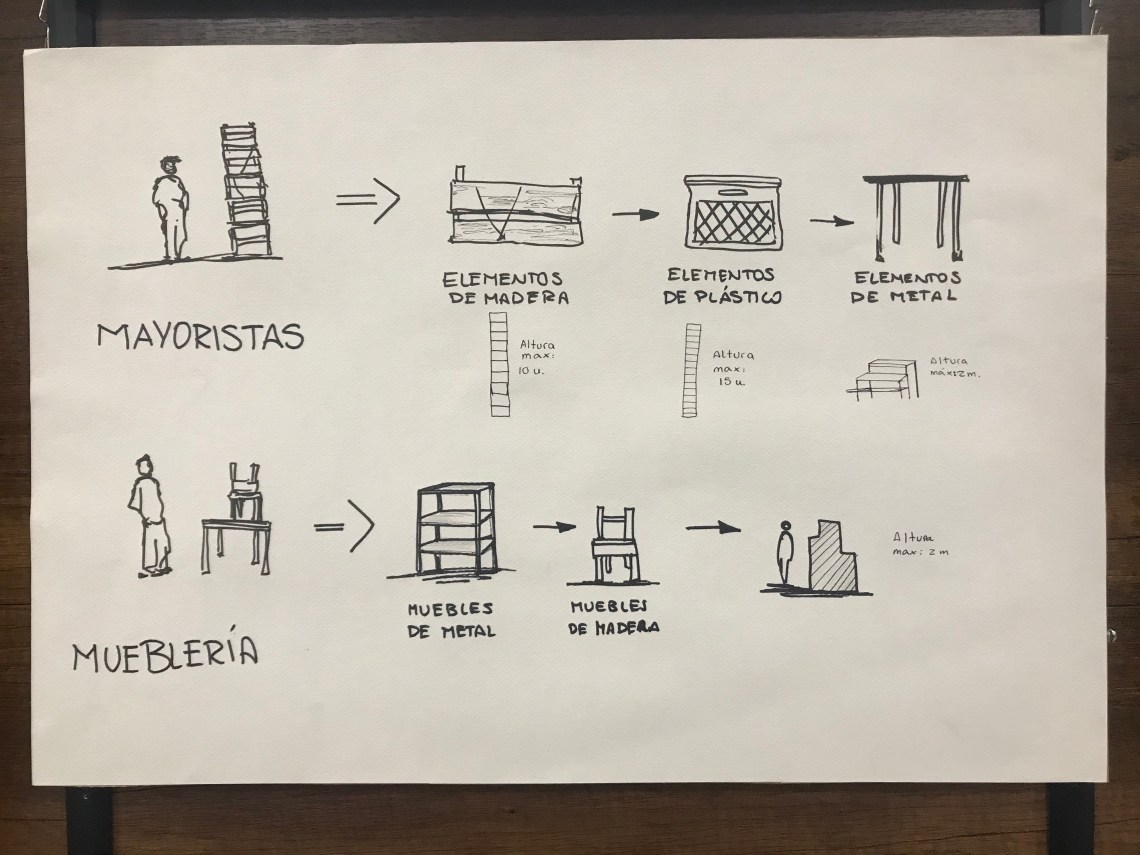 MAYORISTAS
ELEMENTOS
DE MADERA
Altura
max:
10 u.
ELEMENTOS
DE PLÁSTICO
Altura
max:
15 u.
ELEMENTOS
DE METAL
Altura
máx: 2 m.
MUEBLERÍA
MUEBLES
DE METAL
MUEBLES
DE MADERA
Altura
max: 2 m